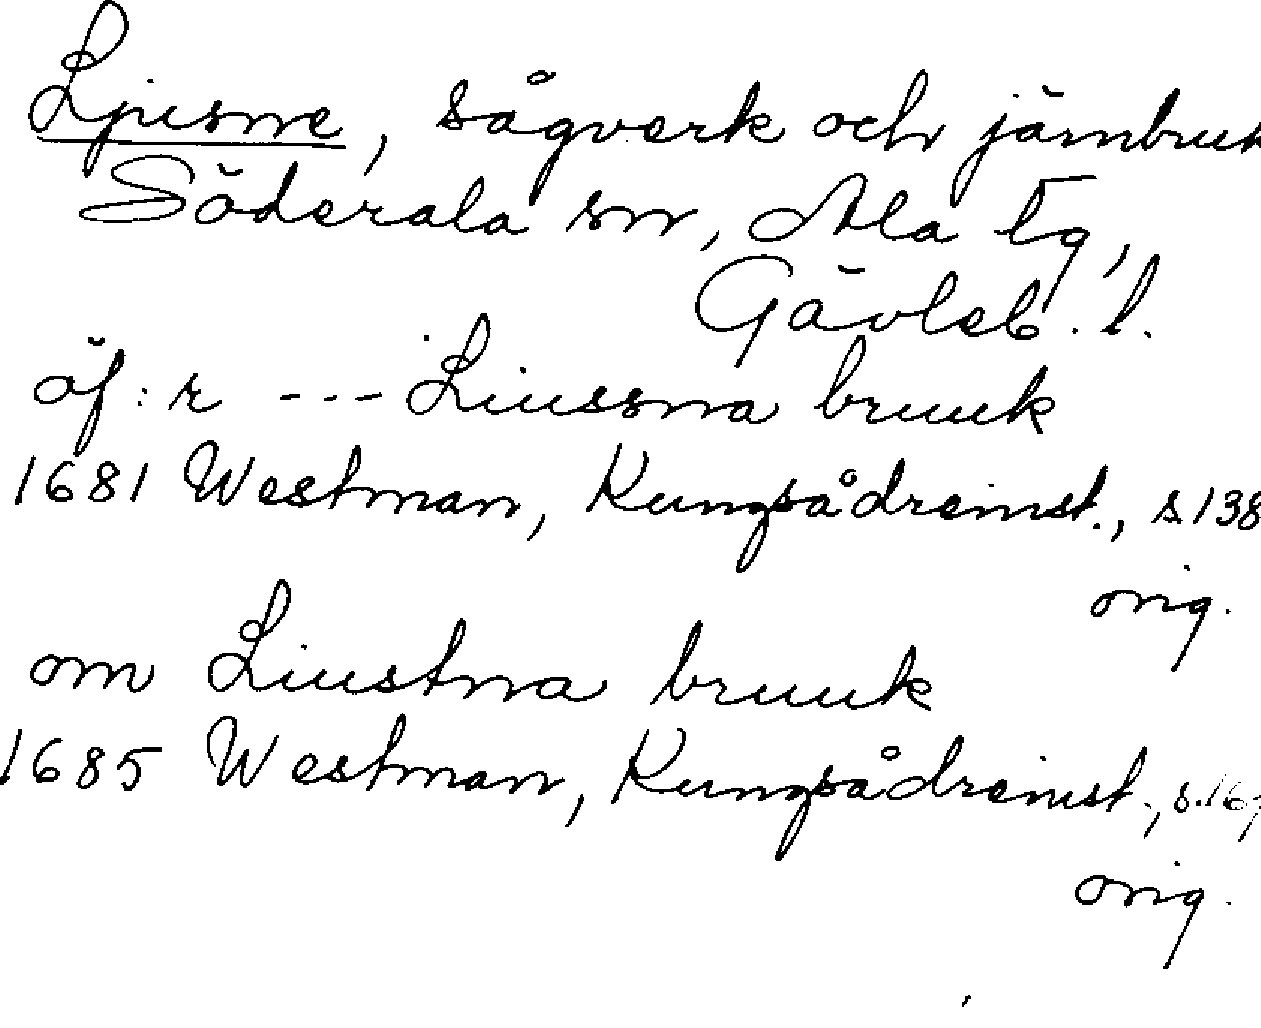 Ljusne, sågverk och järnbruk
Söderala sn, Ala tg,
Gävleb. l.
öf:r --- Liussna bruuk
1681 Westman, Kungsådreinst., s.138
orig.
om Liustna bruuk
1685 Westman, Kungsådreinst.,
orig.